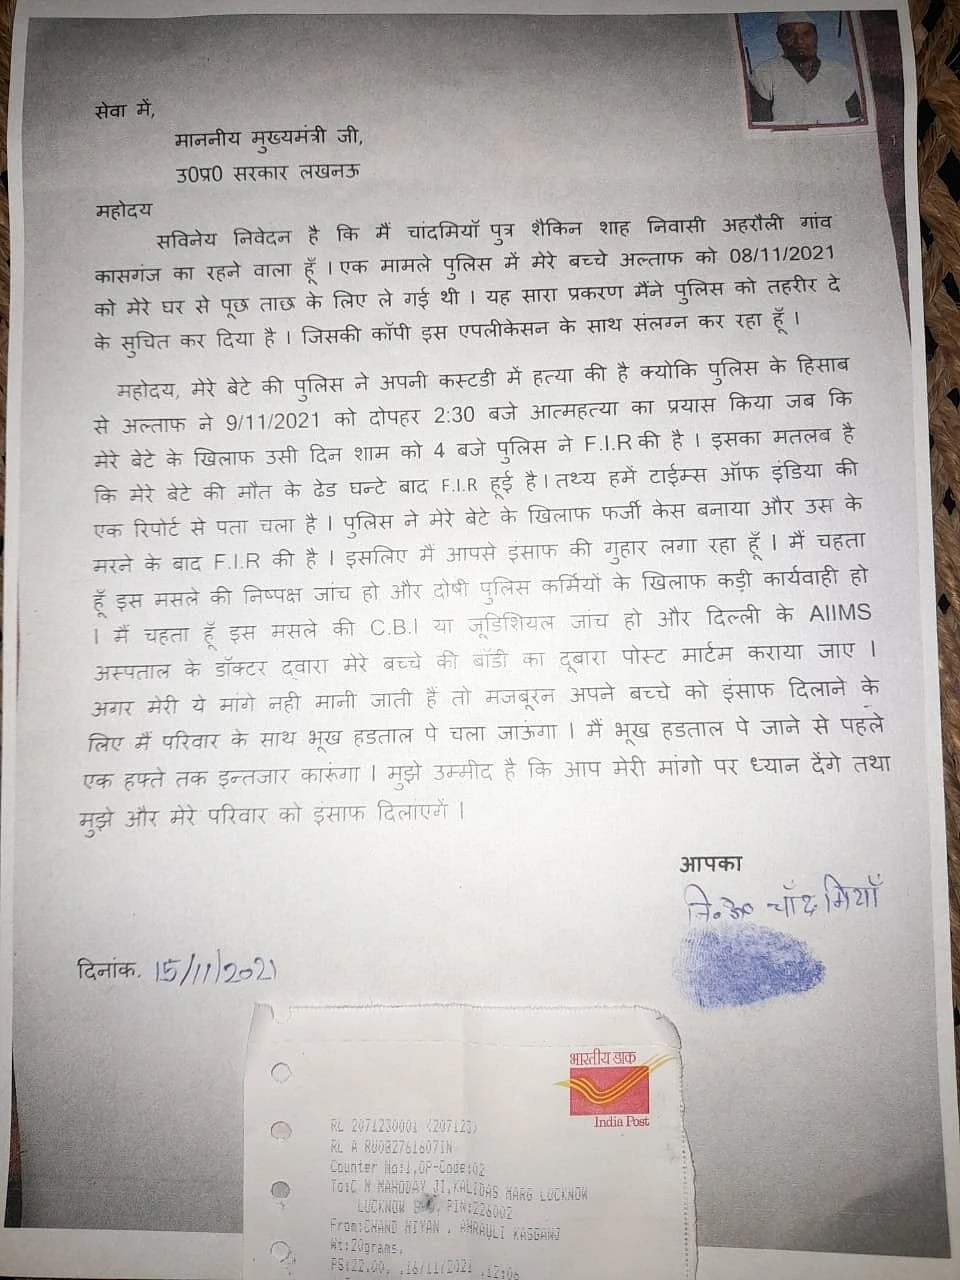 सेवा में,
माननीय मुख्यमंत्री जी,
उ0प्र0 सरकार लखनऊ
महोदय
सविनेय निवेदन है कि मैं चांदमियाँ पुत्र शैकिन शाह निवासी अहरौली गांव
कासगंज का रहने वाला हूँ । एक मामले पुलिस में मेरे बच्चे अल्ताफ को 08/11/2021
को मेरे घर से पूछ ताछ के लिए ले गई थी । यह सारा प्रकरण मैंने पुलिस को तहरीर दे
के सुचित कर दिया है । जिसकी कॉपी इस एपलीकेसन के साथ संलग्न कर रहा हूँ ।
महोदय, मेरे बेटे की पुलिस ने अपनी कस्टडी में हत्या की है क्योकि पुलिस के हिसाब
से अल्ताफ ने 9/11/2021 को दोपहर 2:30 बजे आत्महत्या का प्रयास किया जब कि
मेरे बेटे के खिलाफ उसी दिन शाम को 4 बजे पुलिस ने F.I.R की है । इसका मतलब है
कि मेरे बेटे की मौत के ढेड घन्टे बाद F.I.R हूई है । तथ्य हमें टाईम्स ऑफ इंडिया की
एक रिपोर्ट से पता चला है । पुलिस ने मेरे बेटे के खिलाफ फर्जी केस बनाया और उस के
मरने के बाद F.I.R की है । इसलिए मैं आपसे इंसाफ की गुहार लगा रहा हूँ । मैं चहता
हूँ इस मसले की निष्पक्ष जांच हो और दोषी पुलिस कर्मियों के खिलाफ कड़ी कार्यवाही हो
। मैं चहता हूँ इस मसले की C.B.I या जूडिशियल जांच हो और दिल्ली के AIIMS
अस्पताल के डॉक्टर द्वारा मेरे बच्चे की बॉडी का दूबारा पोस्ट मार्टम कराया जाए ।
अगर मेरी ये मांगे नही मानी जाती हैं तो मजबूरन अपने बच्चे को इंसाफ दिलाने के
लिए मैं परिवार के साथ भूख हडताल पे चला जाऊंगा । मैं भूख हडताल पे जाने से पहले
एक हफ्ते तक इन्तजार कारूंगा । मुझे उम्मीद है कि आप मेरी मांगो पर ध्यान देंगे तथा
मुझे और मेरे परिवार को इंसाफ दिलाएगें ।
आपका
नि.अ चाँद मियाँ
दिनांक. 15/11/2021
भारतीय डाक
India Post
RL 2071230001 <207123>
RL A RU082761607IN
Counter No:1,OP-Code:02
To:C M MAHODAY JI,KALIDAS MARG LUCKNOW
LUCKNOW PIN:226002
From:CHAND MIYAN , AHRAULI KASGANJ
Wt:20grams,
PS:22.00, ,16/11/2021 ,12:06